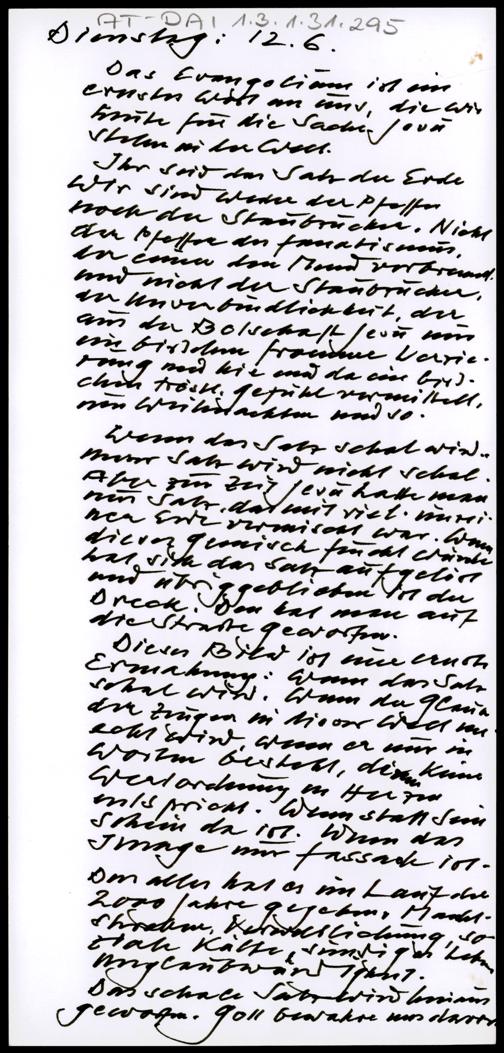 AT-DAI 1.3.1.31.295
Dienstag: 12.6.
Das Evangelium ist ein
ernstes Wort an uns, die wir
heute für die Sache Jesu
stehn in der Welt.
Ihr seid das Salz der Erde
Wir sind weder der Pfeffer
noch der Staubzucker. Nicht
der Pfeffer des Fanatismus,
der einem den Mund verbrennt
und nicht der Staubzucker,
der Unverbindlichkeit, der
aus der Botschaft Jesu nur
ein bisschen fromme Verzie-
rung und hie und da ein biss-
chen Trost. gefühl vermittelt,
um Weihnachten und so.
Wenn das Salz schal wird..
unser Salz wird nicht schal.
Aber zur Zeit Jesu hatte man
nur Salz, das mit viel unrei-
ner Erde vermischt war. Wenn
dieses Gemisch feucht wurde
hat sich das Salz aufgelöst
und übriggeblieben ist der
Dreck. Den hat man auf
die Straße geworfen.
Dieses Bild ist eine ernste
Ermahnung: Wenn das Salz
schal wird. Wenn der Glaube
der Zeugen in dieser Welt un-
echt wird, wenn er nur in
Worten besteht, denen keine
Wertordnung im Herzen
entspricht. Wenn statt Sein
Schein da ist. Wenn das
Image nur Fassade ist.
Das alles hat es im Lauf der
2000 Jahre gegeben, Macht-
streben, Verweltlichung, so-
ziale Kälte, sündiges Leben
Unglaubwürdigkeit.
Das schale Salz wird hinaus
geworfen. Gott bewahre uns davor